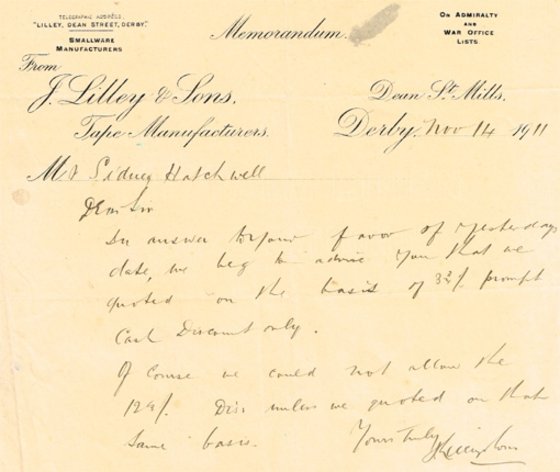 TELEGRAPHIC ADDRESS:
"LILLEY, DEAN STREET, DERBY."
SMALLWARE
MANUFACTURERS
Memorandum.
ON ADMIRALTY
AND
WAR OFFICE
LISTS.
From
J. Lilley & Sons,
Tape Manufacturers.
Dean St. Mills,
Derby, Nov 14 1911
Mr Sidney Hatchwell
Dear Sir
In answer to your favor of yesterdays
date, we beg to advise you that we
quoted on the basis of 3¾% prompt
Cash Discount only.
Of course we could not allow the
12½% Dis: unless we quoted on that
same basis.
Yours truly
J Lilley & Sons